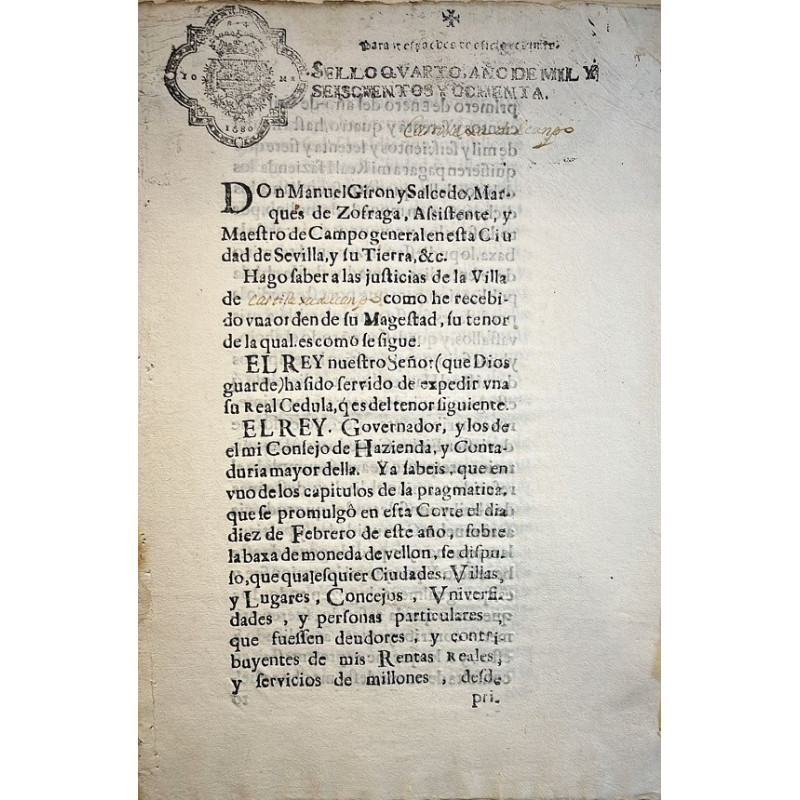 1680
Para despachos de oficio
SELLO QVARTO, AÑO DE MIL Y
SEISCIENTOS Y OCHENTA.
DOn Manuel Giron y Salcedo, Mar-
ques de Zofraga, Assistente, y
Maestro de Campo general en esta Ciu
dad de Sevilla, y su Tierra, &c.
Hago saber a las justicias de la Villa
de como he recebi-
do vna orden de su Magestad, su tenor
de la qual es como se sigue.
EL REY nuestro Señor (que Dios
guarde) ha sido servido de expedir vna
su Real Cedula, q̃ es del tenor siguiente.
EL REY. Governador, y los de
el mi Consejo de Hazienda, y Conta-
duria mayor della. Ya sabeis, que en
vno de los capitulos de la pragmatica,
que se promulgò en esta Corte el dia
diez de Febrero de este año, sobre
la baxa de moneda de vellon, se dispu-
so, que qualesquier Ciudades, Villas,
y Lugares, Concejos, Vniversi-
dades, y personas particulares,
que fuessen deudores, y contri-
buyentes de mis Rentas Reales,
y servicios de millones, desde
pri-